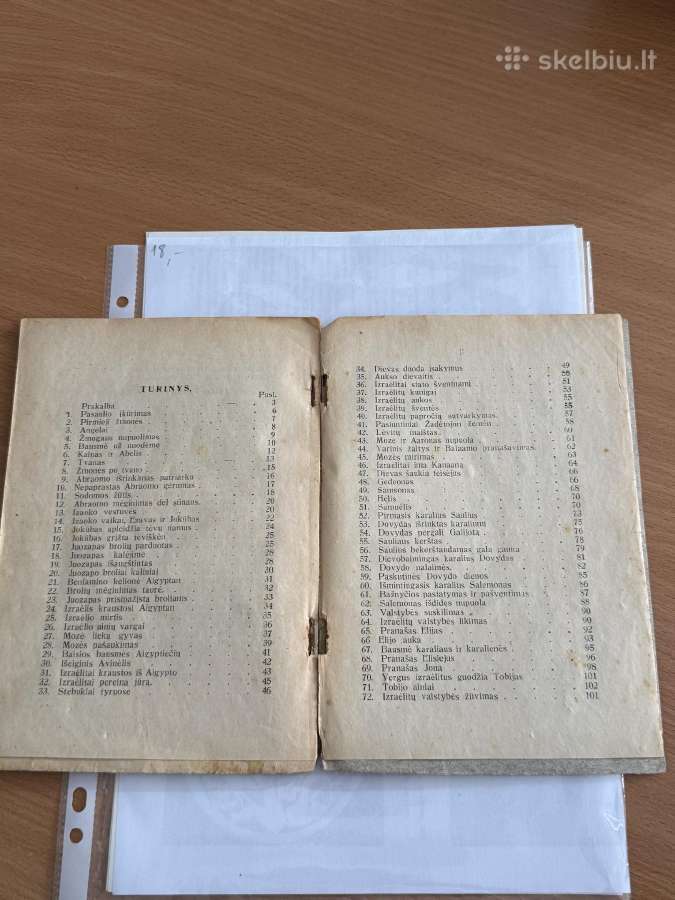 skelbiu.lt
18,-
TURINYS.
Pusl.
Prakalba — — 3
1. Pasaulio įkūrimas 6
2. Pirmieji žmonės 7
3. Angelai 8
4. Žmogaus nupuolimas 9
5. Bausmė už nuodėmę 10
6. Kainas ir Abelis 12
7. Tvanas 13
8. Žmonės po tvano 15
9. Abraomo išrinkimas patriarku 16
10. Nepaprastas Abraomo gerumas 17
11. Sodomos žuvis 18
12. Abraomo mėginimas dėl sūnaus 20
13. Izaoko vestuvės 20
14. Izaoko vaikai, Ezavas ir Jokūbas 22
15. Jokūbas apleidžia tėvų namus 24
16. Jokūbas grįžta tėviškėn 25
17. Juozapas brolių parduotas 25
18. Juozapas kalėjime 26
19. Juozapas išaugštintas 28
20. Juozapo broliai kaliniai 30
21. Beniamino kelionė Aigyptan 31
22. Brolių mėginimas taurė 32
23. Juozapas prisipažįsta broliams 33
24. Izraėlis kraustosi Aigyptan 34
25. Izraėlio mirtis 35
26. Izraėlio ainių vargai 36
27. Mozė lieka gyvas 37
28. Mozės pašaukimas 39
29. Baisios bausmės Aigyptiečių 41
30. Beiginis Avinėlis 42
31. Izraėlitai kraustos iš Aigypto 43
32. Izraėlitai pereina jūrą 45
33. Stebuklai tyruose 46
34. Dievas duoda įsakymus 49
35. Aukso dievaitis 50
36. Izraėlitai stato šventinamį 51
37. Izraėlitų kunigai 53
38. Izraėlitų aukos 55
39. Izraėlitų šventės 55
40. Izraėlitų papročių sutvarkymas 57
41. Pasiuntiniai Žadėtojon žemėn 58
42. Lėvitų maištas 60
43. Mozė ir Aaronas nupuola 61
44. Varinis žaltys ir Balaamo pranašavimas 62
45. Mozės mirimas 63
46. Izraėlitai ima Kanaaną 64
47. Dievas šaukia teisėjus 66
48. Gedeonas 66
49. Samsonas 68
50. Hėlis 70
51. Samuėlis 70
52. Pirmasis karalius Saulius 73
53. Dovydas išrinktas karalium 75
54. Dovydas pergali Galijotą 76
55. Sauliaus kerštas 78
56. Saulius bekerštaudamas galą gauna 79
57. Dievobaimingas karalius Dovydas 81
58. Dovydo nelaimės 82
59. Paskutinės Dovydo dienos 85
60. Išmintingasis karalius Salemonas 86
61. Bažnyčios pastatymas ir pašventimas 87
62. Salemonas išdidęs nupuola 88
63. Valstybės suskilimas 90
64. Izraėlitų valstybės likimas 90
65. Pranašas Elijas 92
66. Elijo auka 93
67. Bausmė karaliaus ir karalienės 95
68. Pranašas Elisiejas 96
69. Pranašas Jona 98
70. Vergus izraėlitus guodžia Tobijas 101
71. Tobijo ainiai 102
72. Izraėlitų valstybės žuvimas 101